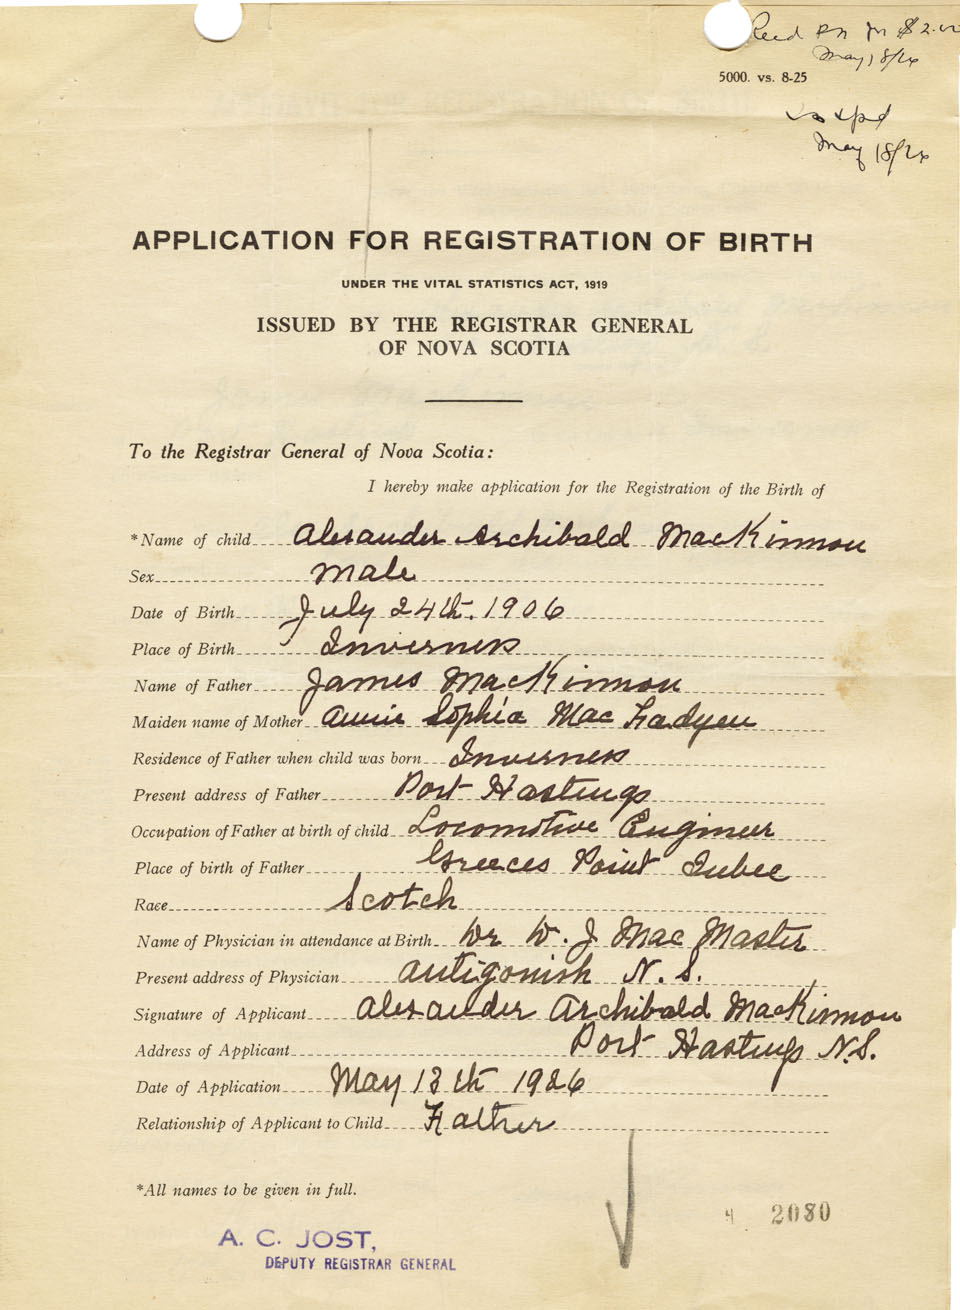 Recd PN for $2.00
May 18/26
5000. vs. 8-25
May 18/26
APPLICATION FOR REGISTRATION OF BIRTH
UNDER THE VITAL STATISTICS ACT, 1919
ISSUED BY THE REGISTRAR GENERAL
OF NOVA SCOTIA
To the Registrar General of Nova Scotia:
I hereby make application for the Registration of the Birth of
*Name of child Alexander Archibald MacKinnon
Sex Male
Date of Birth July 24th. 1906
Place of Birth Inverness
Name of Father James MacKinnon
Maiden name of Mother Annie Sophia MacFadyen
Residence of Father when child was born Inverness
Present address of Father Port Hastings
Occupation of Father at birth of child Locomotive Engineer
Place of birth of Father Greeces Point Qubec
Race Scotch
Name of Physician in attendance at Birth Dr W. J MacMaster
Present address of Physician Antigonish N. S.
Signature of Applicant Alexander Archibald MacKinnon
Address of Applicant Port Hastings N.S.
Date of Application May 13th 1926
Relationship of Applicant to Child Father
*All names to be given in full.
2080
A. C. JOST,
DEPUTY REGISTRAR GENERAL